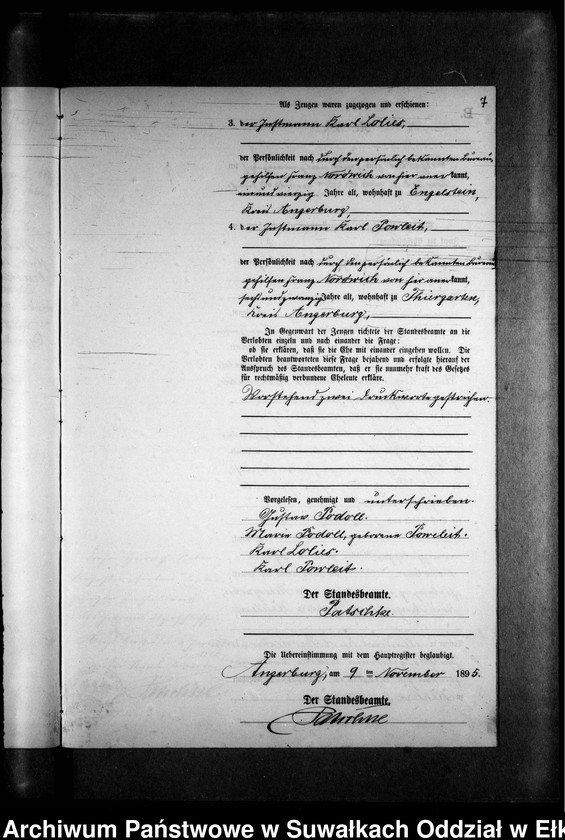 7
Als Zeugen waren zugezogen und erschienen:
3. der Instmann Karl Lolies,
der Persönlichkeit nach durch den persönlich bekannten Bureau
gehilfen Franz Nordwich von hier aner kannt,
einundvierzig Jahre alt, wohnhaft zu Engelstein,
Kreis Angerburg,
4. der Instmann Karl Powleit,
der Persönlichkeit nach durch den persönlich bekannten Bureau
gehilfen Franz Nordwich von hier aner kannt,
sechsundzwanzig Jahre alt, wohnhaft zu Thiergarten,
Kreis Angerburg,
In Gegenwart der Zeugen richtete der Standesbeamte an die
Verlobten einzeln und nach einander die Frage:
ob sie erklären, daß sie die Ehe mit einander eingehen wollen. Die
Verlobten beantworteten diese Frage bejahend und erfolgte hierauf der
Ausspruch des Standesbeamten, daß er sie nunmehr kraft des Gesetzes
für rechtmäßig verbundene Eheleute erkläre.
Vorstehend zwei Druckworte gestrichen.
Vorgelesen, genehmigt und unterschrieben.
Gustav Podoll.
Marie Podoll, geborene Poweleit.
Karl Lolies.
Karl Powleit.
Der Standesbeamte.
Patschke.
Die Uebereinstimmung mit dem Hauptregister beglaubigt.
Angerburg, am 9 ten November 1895.
Der Standesbeamte.
Archiwum Państwowe w Suwałkach Oddział w Ełk